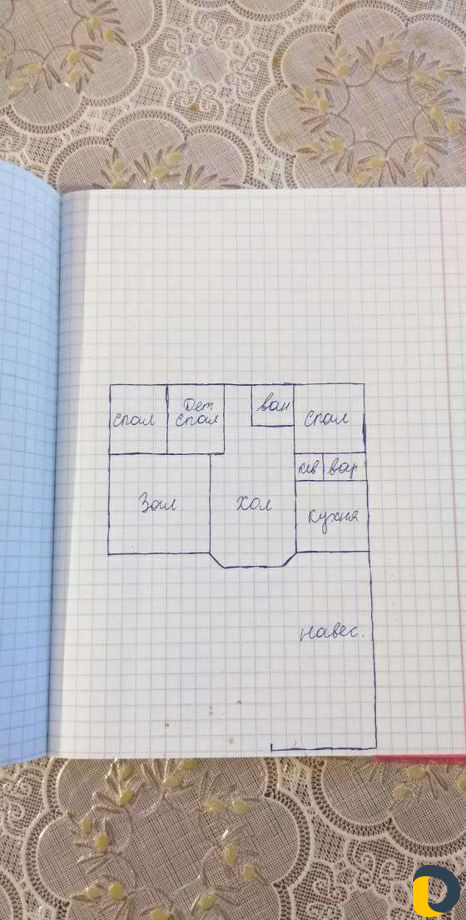 спал
Дет
спал
ван
спал
Зал
хол
кив вар
кухня
навес.